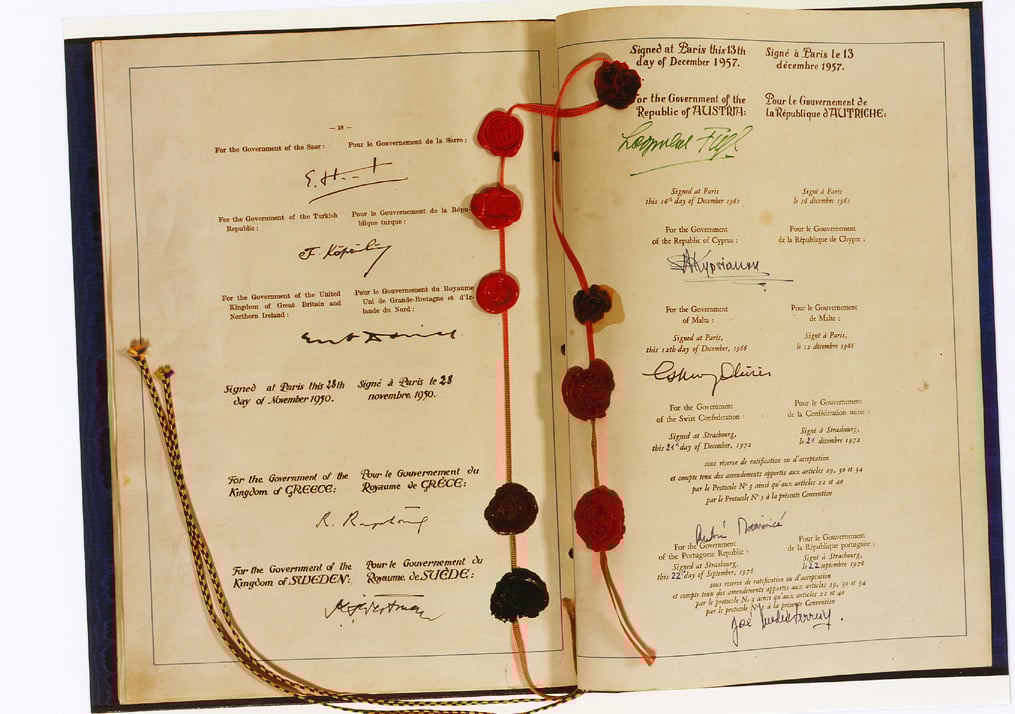 — 18 —
For the Government of the Saar :
Pour le Gouvernement de la Sarre :
For the Government of the Turkish
Republic :
Pour le Gouvernement de la Répu-
blique turque :
For the Government of the United
Kingdom of Great Britain and
Northern Ireland :
Pour le Gouvernement du Royaume
Uni de Grande-Bretagne et d'Ir-
lande du Nord :
Signed at Paris this 28th
day of November 1950.
Signé à Paris le 28
novembre 1950.
For the Government of the
Kingdom of GREECE:
Pour le Gouvernement du
Royaume de GRÈCE:
For the Government of the
Kingdom of SWEDEN:
Pour le Gouvernement du
Royaume de SUÈDE:
Signed at Paris this 13th
day of December 1957.
Signé à Paris le 13
décembre 1957.
For the Government of the
Republic of AUSTRIA:
Pour le Gouvernement de
la République d'AUTRICHE:
Leopold Figl
Signed at Paris
this 16th day of December 1961
Signé à Paris
le 16 décembre 1961
For the Government
of the Republic of Cyprus :
Pour le Gouvernement
de la République de Chypre :
Kyprianou
For the Government
of Malta :
Pour le Gouvernement
de Malte :
Signed at Paris,
this 12th day of December, 1966
Signé à Paris,
le 12 décembre 1966
For the Government
of the Swiss Confederation :
Pour le Gouvernement
de la Confédération suisse :
Signed at Strasbourg,
this 21st day of December, 1972
Signé à Strasbourg,
le 21 décembre 1972
sous réserve de ratification ou d'acceptation
et compte tenu des amendements apportés aux articles 29, 30 et 34
par le Protocole N° 3 ainsi qu'aux articles 22 et 40
par le Protocole N° 5 à la présente Convention
For the Government
of the Portuguese Republic :
Pour le Gouvernement
de la République portugaise :
Signed at Strasbourg,
this 22nd day of September, 1976
Signé à Strasbourg,
le 22 septembre 1976
sous réserve de ratification ou d'acceptation
et compte tenu des amendements apportés aux articles 29, 30 et 34
par le protocole N. 3 ainsi qu'aux articles 22 et 40
par le protocole N° 5 à la présente Convention
José